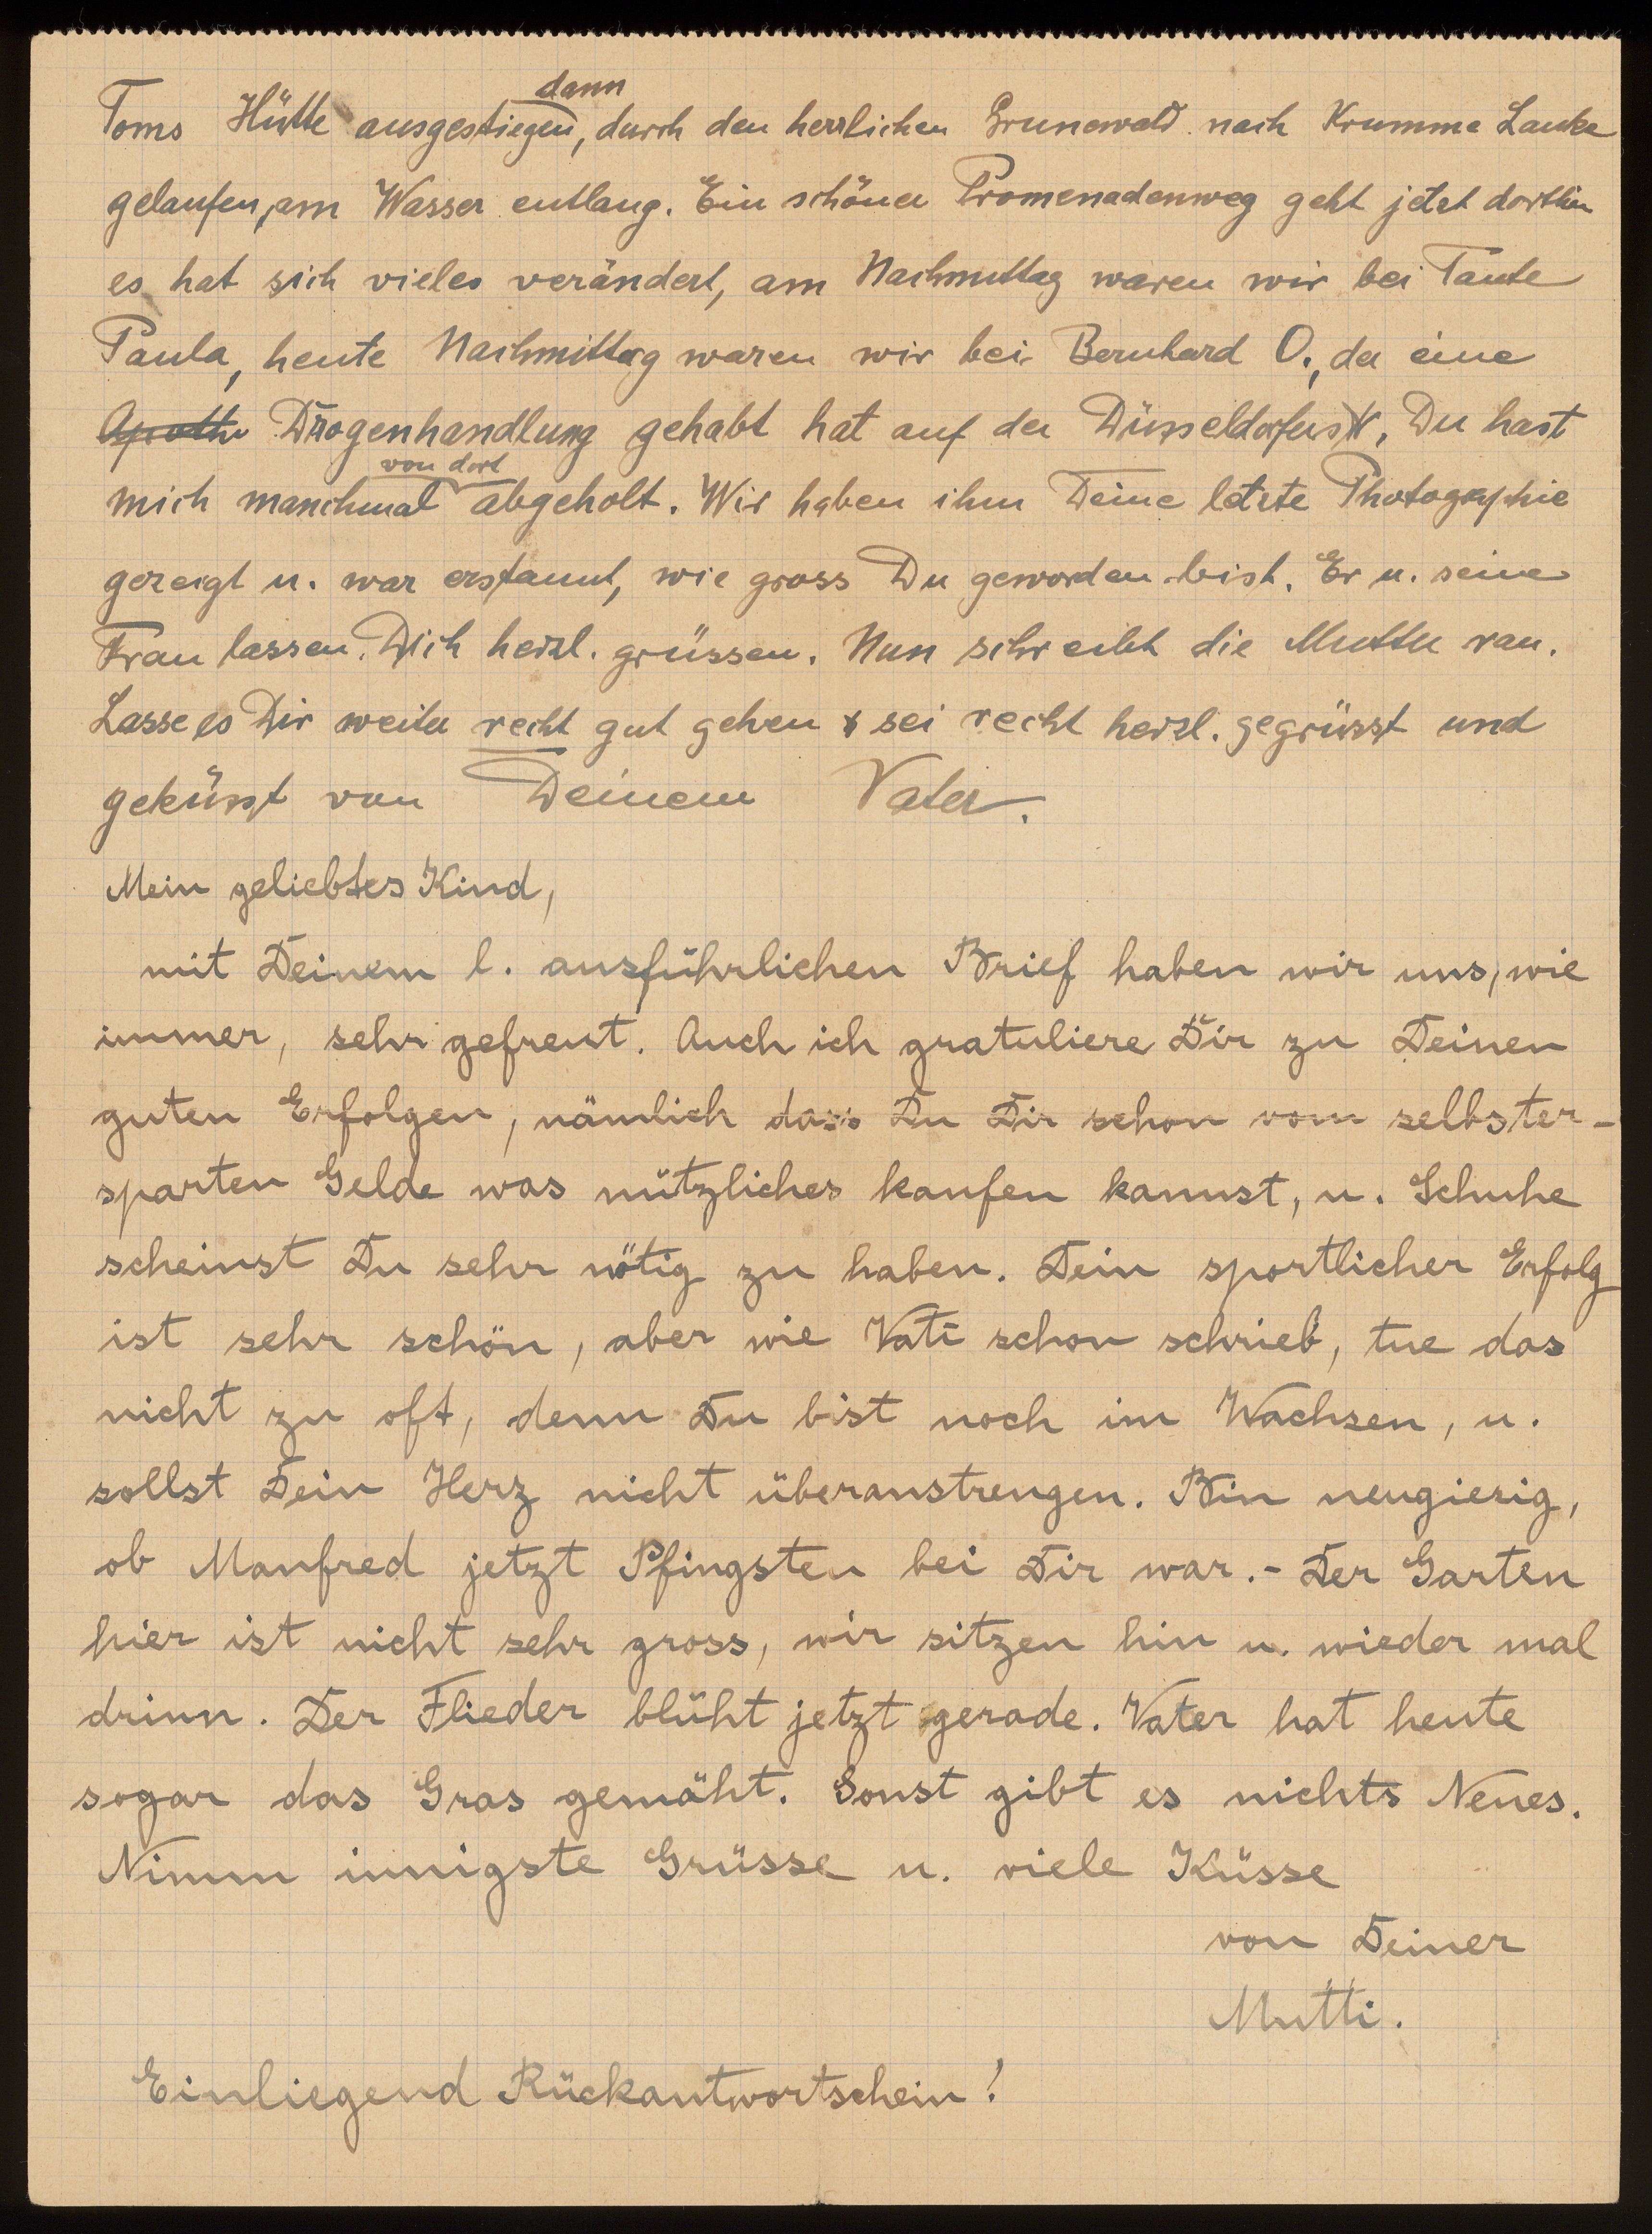 dann
Toms Hütte ausgestiegen, durch den herrlichen Grunewald nach Krumme Lanke
gelaufen, am Wasser entlang. Ein schöner Promenadenweg geht jetzt dorthin
es hat sich vieles verändert, am Nachmittag waren wir bei Tante
Paula, heute Nachmittag waren wir bei Bernhard O., der eine
Apothe Drogenhandlung gehabt hat auf der Düsseldorferstr, Du hast
von dort
mich manchmal abgeholt. Wir haben ihm Deine letzte Photographie
gezeigt u. war erstaunt, wie gross Du geworden bist. Er u. seine
Frau lassen Dich herzl. grüssen. Nun schreibt die Mutter ran.
Lasse es Dir weiter recht gut gehen & sei recht herzl. gegrüsst und
geküsst von Deinem Vater.
Mein geliebtes Kind,
mit Deinem l. ausführlichen Brief haben wir uns, wie
immer, sehr gefreut. Auch ich gratuliere Dir zu Deinen
guten Erfolgen, nämlich dass Du Dir schon vom selbster-
sparten Gelde was nützliches kaufen kannst, u. Schuhe
scheinst Du sehr nötig zu haben. Dein sportlicher Erfolg
ist sehr schön, aber wie Vati schon schrieb, tue das
nicht zu oft, denn Du bist noch im Wachsen, u.
sollst Dein Herz nicht überanstrengen. Bin neugierig,
ob Manfred jetzt Pfingsten bei Dir war.- Der Garten
hier ist nicht sehr gross, wir sitzen hin u. wieder mal
drinn. Der Flieder blüht jetzt gerade. Vater hat heute
sogar das Gras gemäht. Sonst gibt es nichts Neues.
Nimm innigste Grüsse u. viele Küsse
von Deiner
Mutti.
Einliegend Rückantwortschein!